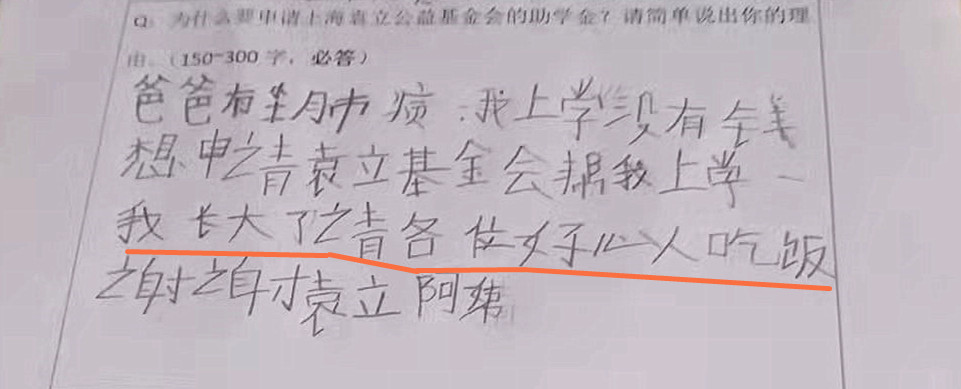 Q: 为什么要申请上海袁立公益基金会的助学金？请简单说出你的理
由.（150-300 字，必答）
爸爸有生肺病.我上学没有钱
想申请袁立基金会帮我上学
我长大了请各位好心人吃饭
谢谢袁立阿姨